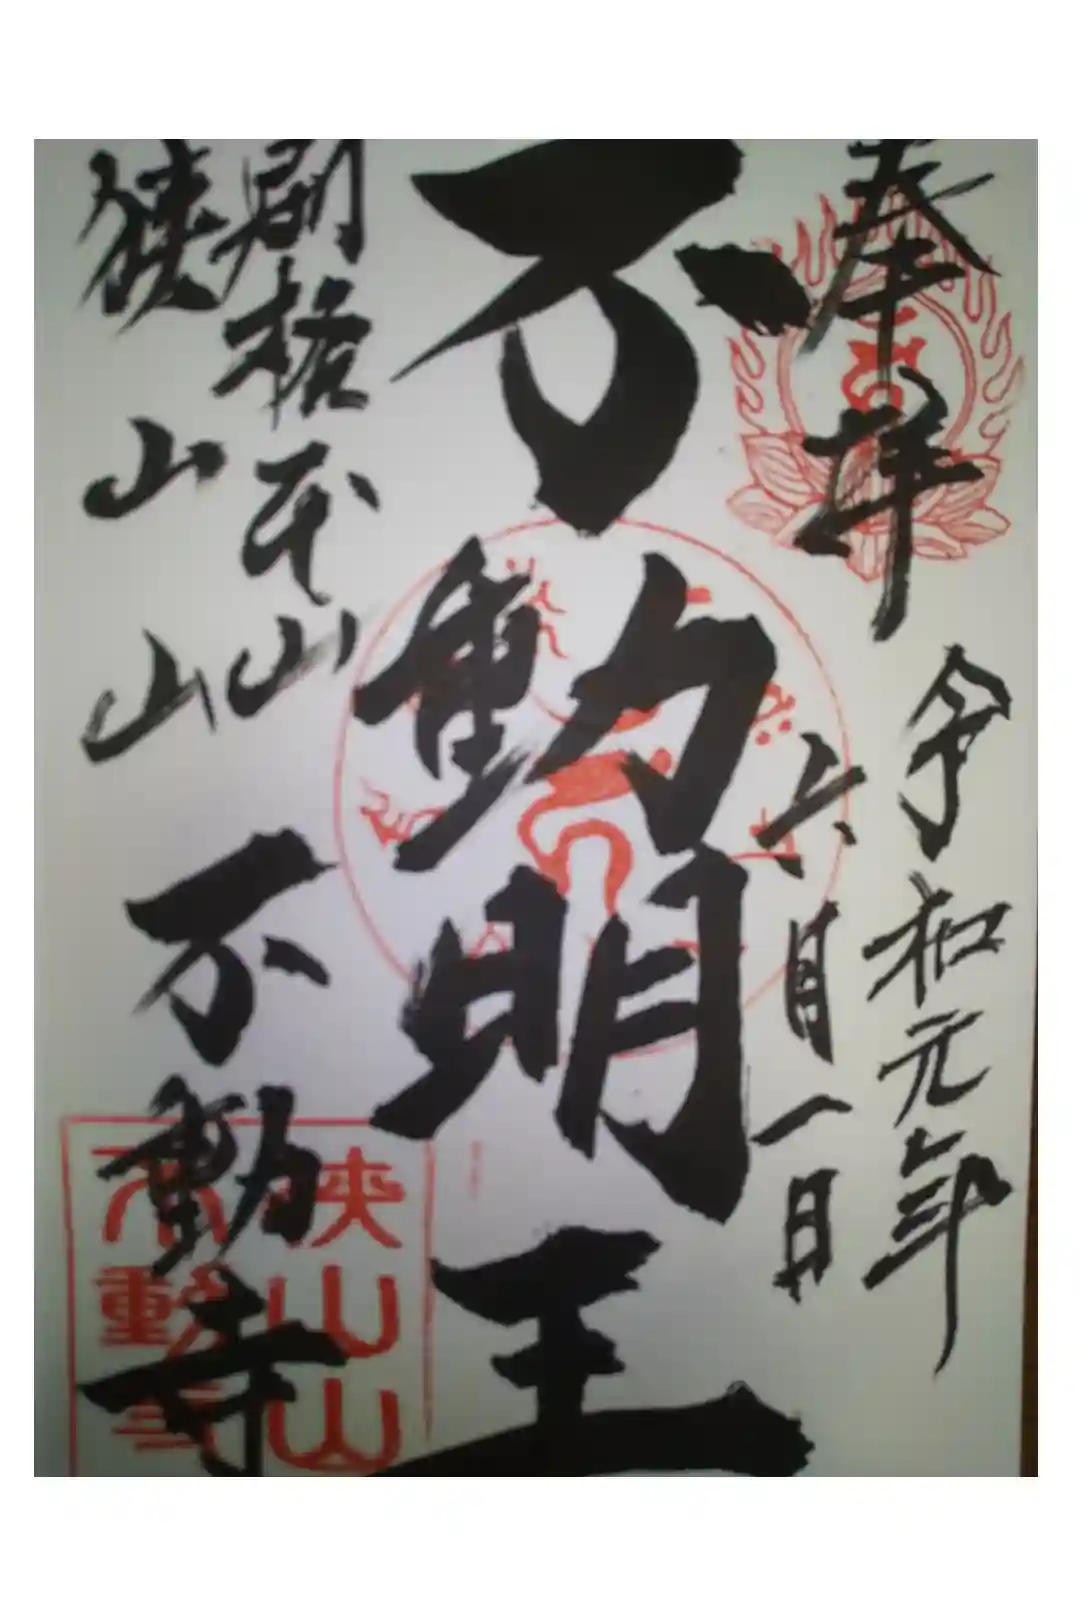 奉拝
令和元年
六月一日
不動明王
別格本山
狭山山
不動寺
狭山山
不動寺